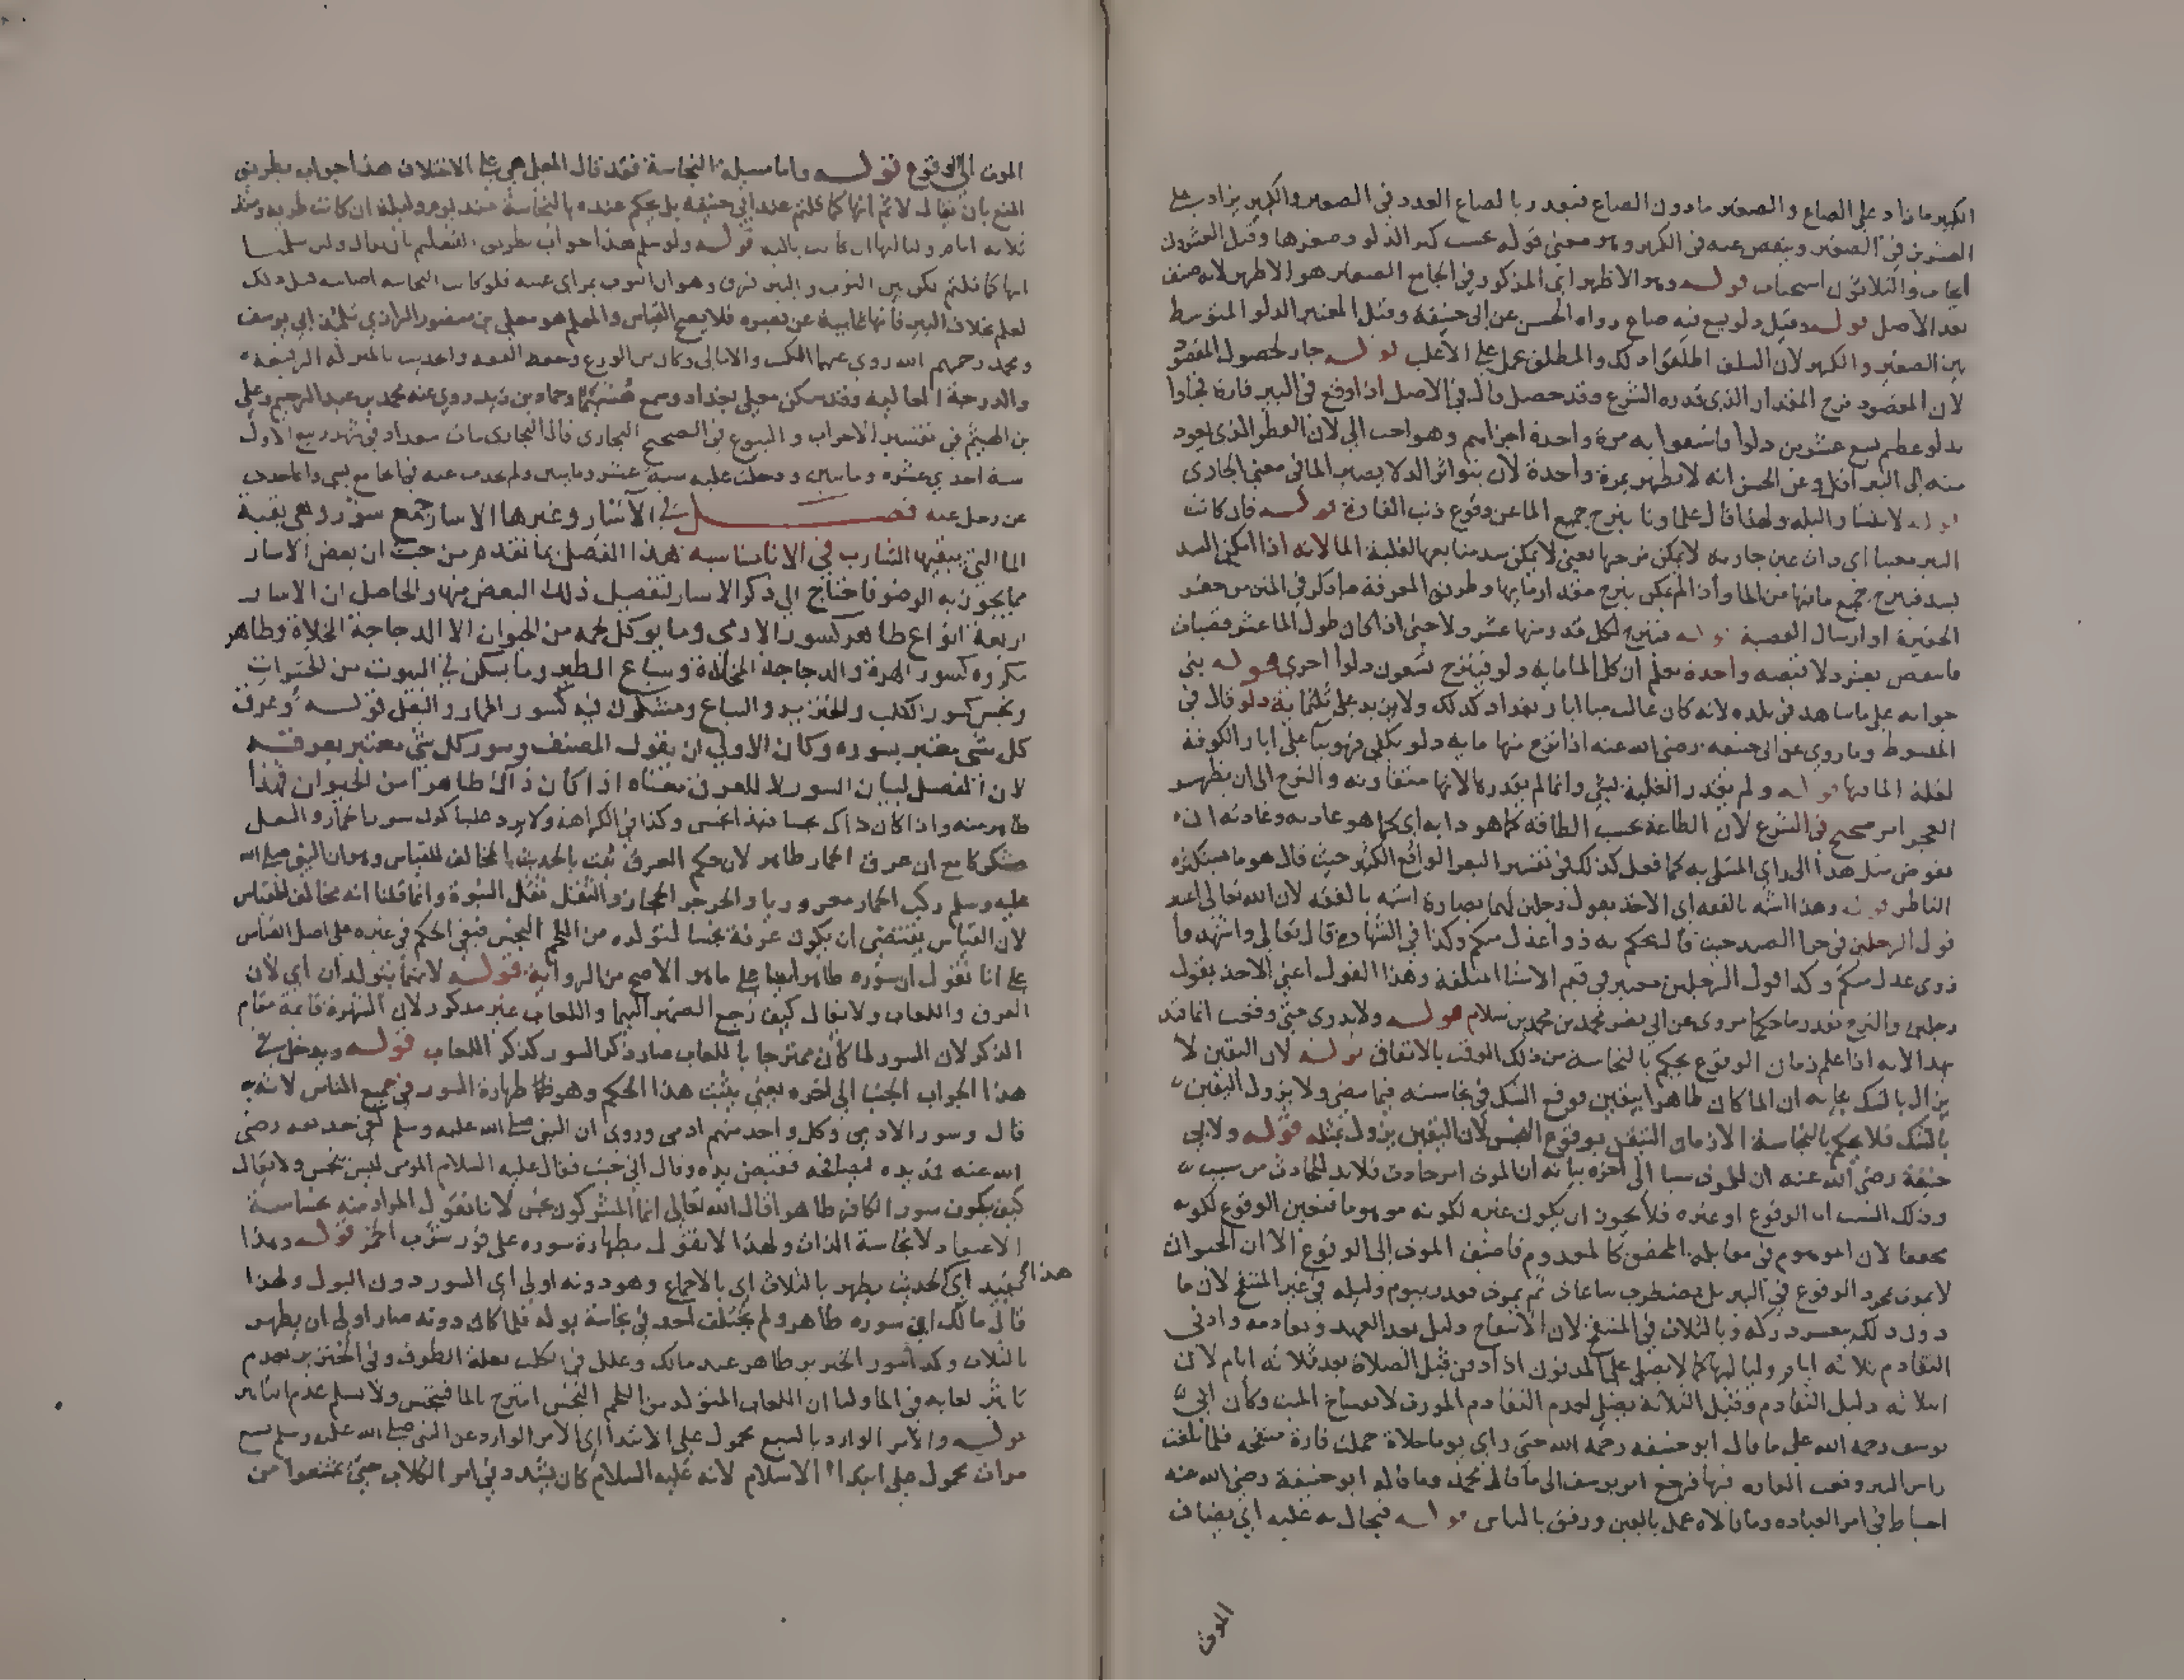 الكبير ما زاد على الصاع والصغير ما دون الصاع فيقدر بالصاع العدد في الصغير والكبير يزاد على
العشرين في الصغير وينقص عنه في الكبير وهو معنى قوله بحسب كبر الدلو وصغرها وقيل العشرون
ايجاب والثلاثون استحباب قوله وهو الاظهر اي المذكور في الجامع الصغير هو الاظهر لانه صنف
بعد الاصل قوله وقيل دلو يسع فيه صاع رواه الحسن عن ابي حنيفة وقيل المعتبر الدلو المتوسط
بين الصغير والكبير لان السلف اطلقوا ذلك والمطلق يحمل على الاغلب قوله جاز لحصول المقصود
لان المقصود نزح المقدار الذي قدره الشرع وقد حصل قال في الاصل اذا وقع في البير فارة فجاوا
بدلو عظيم يسع عشرين دلوا فاستقوا به مرة واحدة اجزاهم وهو احب الي لان القطر الذي يعود
منه الى البير اقل وعن الحسن انه لا يطهر بمرة واحدة لان بتواتر الدلا يصير الما في معنى الجاري
قوله لانتشار البلة ولهذا قال علماونا ينزح جميع الما عن وقوع ذنب الفارة قوله فان كانت
البير معينا اي ذات عين جارية لا يمكن نزحها يعني لا يمكن سد منابعها لغلبة الما لانه اذا امكن السد
يسد فينزح جميع ما فيها من الما واذا لم يمكن ينزح مقدار مايها وطريق المعرفة ما ذكر في المتن من حفر
الحفيرة او ارسال القصبة قوله فينزح لكل قدر منها عشر دلا حتى اذا كان طول الما عشر قبضات
فانتقص بعشر دلا قبضة واحدة يعلم ان كل الما ماية دلو فينزح تسعون دلوا اخرى قوله بنى
جوابه على ما شاهد في بلده لانه كان غالب مياه ابار بغداد كذلك ولا يزيد على ثلثماية دلو قال في
المبسوط وما روي عن ابي حنيفة رضي الله عنه اذا نزح منها ماية دلو يكفي فهو بنا على ابار الكوفة
لقلة الما فيها قوله ولم يقدر الغلبة بشي وانما لم يقدرها لانها متفاوتة والنزح الى ان يظهر
العجز امر صحيح في الشرع لان الطاعة بحسب الطاقة كما هو دابه اي كما هو عادته وعادته ان
يفوض مثل هذا الى راي المبتلى به كما فعل كذلك في تفسير البعر الواقع الكثير حيث قال هو ما يستكثره
الناظر قوله وهذا اشبه بالفقه اي الاخذ بقول رجلين لهما بصارة اشبه بالفقه لان الله تعالى اعتبر
قول الرجلين في جزا الصيد حيث قال يحكم به ذوا عدل منكم وكذا في الشهادة قال تعالى واشهدوا
ذوى عدل منكم وكذا قول الرجلين معتبر في قيم الاشيا المتلفة وهذا القول اعني الاخذ بقول
رجلين والنزح بقدر ما حكما مروي عن ابي نصر محمد بن محمد بن سلام قوله ولا يدرى متى وقعت انما قيد
بهذا لانه اذا علم زمان الوقوع يحكم بالنجاسة من ذلك الوقت بالاتفاق قوله لان اليقين لا
يزال بالشك بيانه ان الما كان طاهرا بيقين فوقع الشك في نجاسته فيما مضى ولا يزول اليقين
بالشك فلا يحكم بالنجاسة الا زمان التيقن بوقوع النجس لان اليقين يزول بمثله قوله ولابي
حنيفة رضي الله عنه ان للموت سببا الى اخره بيانه ان الموت امر حادث فلا بد للحادث من سبب
وذلك السبب اما الوقوع او غيره فلا يجوز ان يكون غيره لكونه موهوما فتعين الوقوع لكونه
محققا لان الموهوم في مقابلة المحقق كالمعدوم فاضيف الموت الى الوقوع الا ان الحيوان
لا يموت بمجرد الوقوع في البير بل يضطرب ساعات ثم يموت فقدر بيوم وليلة في غير المنتفخ لان ما
دون ذلك يعسر دركه وبالثلاث في المنتفخ لان الانتفاخ دليل بعد العهد وتقادمه وادنى
التقادم ثلاثة ايام ولياليها كما لا يصلى على المدفون اذا دفن قبل الصلاة بعد ثلاثة ايام لان
الثلاثة دليل التقادم وقبل الثلاثة يصلى لعدم التقادم المورث لانفساخ الميت وكان ابي
يوسف رحمه الله على ما قال ابو حنيفة رحمه الله حتى راى يوما حداة حملت فارة منتفخة فلما بلغت
راس البير وقعت الفارة فيها فرجع ابو يوسف الى ما قال محمد وما قاله ابو حنيفة رضي الله عنه
احتياط في امر العبادة وما قالاه عمل باليقين ورفق بالناس قوله فيحال به عليه اي يضاف
الموت
الموت الى الوقوع قوله واما مسيلة النجاسة فقد قال المعلى هي على الاختلاف هذا جواب بطريق
المنع بان يقال لا نم انها كما قلتم عند ابي حنيفة بل يحكم عنده بالنجاسة منذ يوم وليلة ان كانت طرية ومنذ
ثلاثة ايام ولياليها ان كانت بالية قوله ولو سلم هذا جواب بطريق التسليم بان يقال ولين سلمنا
انها كما قلتم لكن بين الثوب والبير فرق وهو ان الثوب بمراى عينه فلو كانت النجاسة اصابته قبل ذلك
لعلم بخلاف البير فانها غايبة عن بصره فلا يصح القياس والمعلى هو معلى بن منصور الرازي تلميذ ابي يوسف
ومحمد رحمهم الله روى عنهما الكتب والامالي وكان من الورع وحفظ الفقه والحديث بالمنزلة الرفيعة
والدرجة العالية وقد سكن معلى بغداد وسمع هشيما وحماد بن زيد روى عنه محمد بن عبد الرحيم وعلي
بن الهيثم في تفسير الاحزاب والبيوع في الصحيح البخاري قال البخاري مات ببغداد في شهر ربيع الاول
سنة احدي عشرة ومايتين ودخلت عليه سنة عشر ومايتين ولم يحدث عنه في الجامع بشي وانما حدث
عن رجل عنه فصل في الآسار وغيرها الاسار جمع سؤر وهي بقية
الما التي يبقيها الشارب في الانا مناسبة هذا الفصل بما تقدم من حيث ان بعض الاسار
مما يجوز به الوضو فاحتاج الى ذكر الاسار لتفصيل ذلك البعض منها والحاصل ان الاسار
اربعة انواع طاهر كسور الادمى وما يوكل لحمه من الحيوان الا الدجاجة المخلاة وطاهر
مكروه كسور الهرة والدجاجة المخلاة وسباع الطير وما يسكن في البيوت من الحشرات
ونجس كسور الكلب والخنزير والسباع ومشكوك فيه كسور الحمار والبغل قوله وعرق
كل شي يعتبر بسوره وكان الاولى ان يقول المصنف وسور كل شي معتبر بعرقه
لان الفصل لبيان السور لا للعرق معناه اذا كان ذاك طاهرا من الحيوان فهذا
طاهر منه واذا كان ذاك نجسا فهذا نجس وكذا في الكراهة ولا يرد علينا كون سور الحمار والبغل
مشكوكا مع ان عرق الحمار طاهر لان حكم العرق ثبت بالحديث المخالف للقياس وهو ان النبي صلى الله
عليه وسلم ركب الحمار معروريا والحر حر الحجاز والثقل ثقل النبوة وانما قلنا انه مخالف للقياس
لان القياس يقتضي ان يكون عرقه نجسا لتولده من اللحم النجس فبقي الحكم في غيره على اصل القياس
على انا نقول ان سوره طاهر ايضا على ما هو الاصح من الرواية قوله لانهما يتولدان اي لان
العرق واللعاب ولا يقال كيف رجع الضمير اليهما واللعاب غير مذكور لان الشهرة قائمة مقام
الذكر لان السور لما كان ممتزجا باللعاب صار ذكر السور كذكر اللعاب قوله ويدخل في
هذا الجواب الجنب الى اخره يعني يثبت هذا الحكم وهو طهارة السور في جميع الناس لانه
قال وسور الادمي وكل واحد منهم ادمى وروي ان النبي صلى الله عليه وسلم لقي حذيفة رضي
الله عنه فمد يده ليصافحه فقبض يده وقال اني جنب فقال عليه السلام المومن ليس بنجس ولا يقال
كيف يكون سور الكافر طاهرا قال الله تعالى انما المشركون نجس لانا نقول المراد منه نجاسة
الاعتقاد لا نجاسة الذات ولهذا لا نقول بطهارة سوره على فور شرب الخمر قوله وهذا
هذا يفيد اي الحديث يطهر بالثلاث اي بالاجماع وهو دونه اولى اي السور دون البول ولهذا
قال مالك ان سوره طاهر ولم يختلف احد في نجاسة بوله فلما كان دونه صار اولى ان يطهر
بالثلاث وكذا سور الخنزير طاهر عند مالك وعلل في الكلب بعلة الطوف وفي الخنزير بعدم
تاثير لعابه في الما ولنا ان اللعاب المتولد من اللحم النجس امتزج بالما فينجس ولا نسلم عدم تاثيره
قوله والامر الوارد بالسبع محمول على الابتدا اي الامر الوارد عن النبي صلى الله عليه وسلم بسبع
مرات محمول على ابتدا الاسلام لانه عليه السلام كان يشدد في امر الكلاب حتى يمتنعوا من